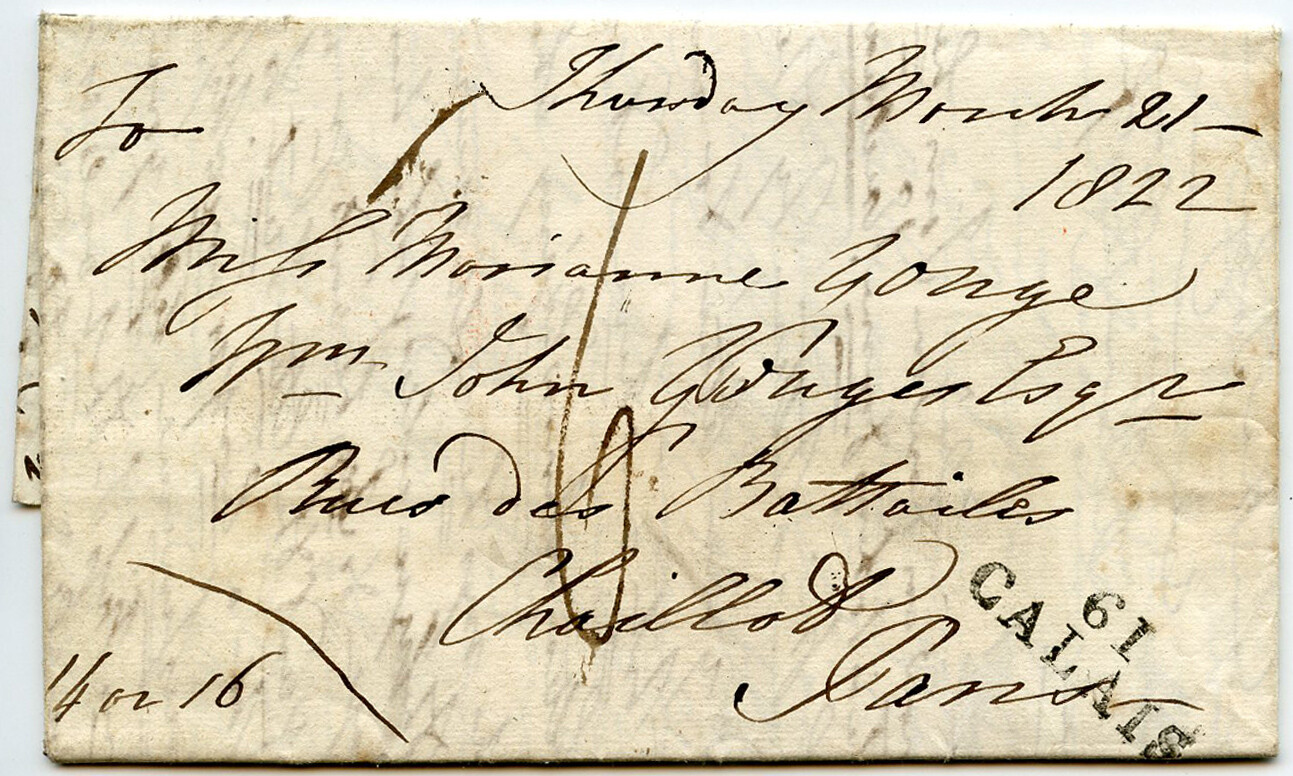 To
Thursday March 21 –
1822
Miss Marianne Gonge
Wm John Gonges Esqr
Rue des Battailes
Chaillot
Paris
14 or 16
61
CALAIS